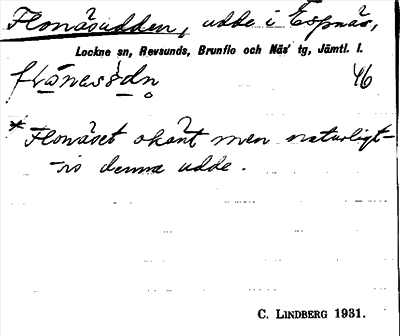 Flonäsudden, udde i Espnäs,
Lockne sn, Revsunds, Brunflo och Näs' tg, Jämtl. l.
46
* Flonäset okänt men naturligt-
-vis denna udde.
C. LINDBERG 1931.